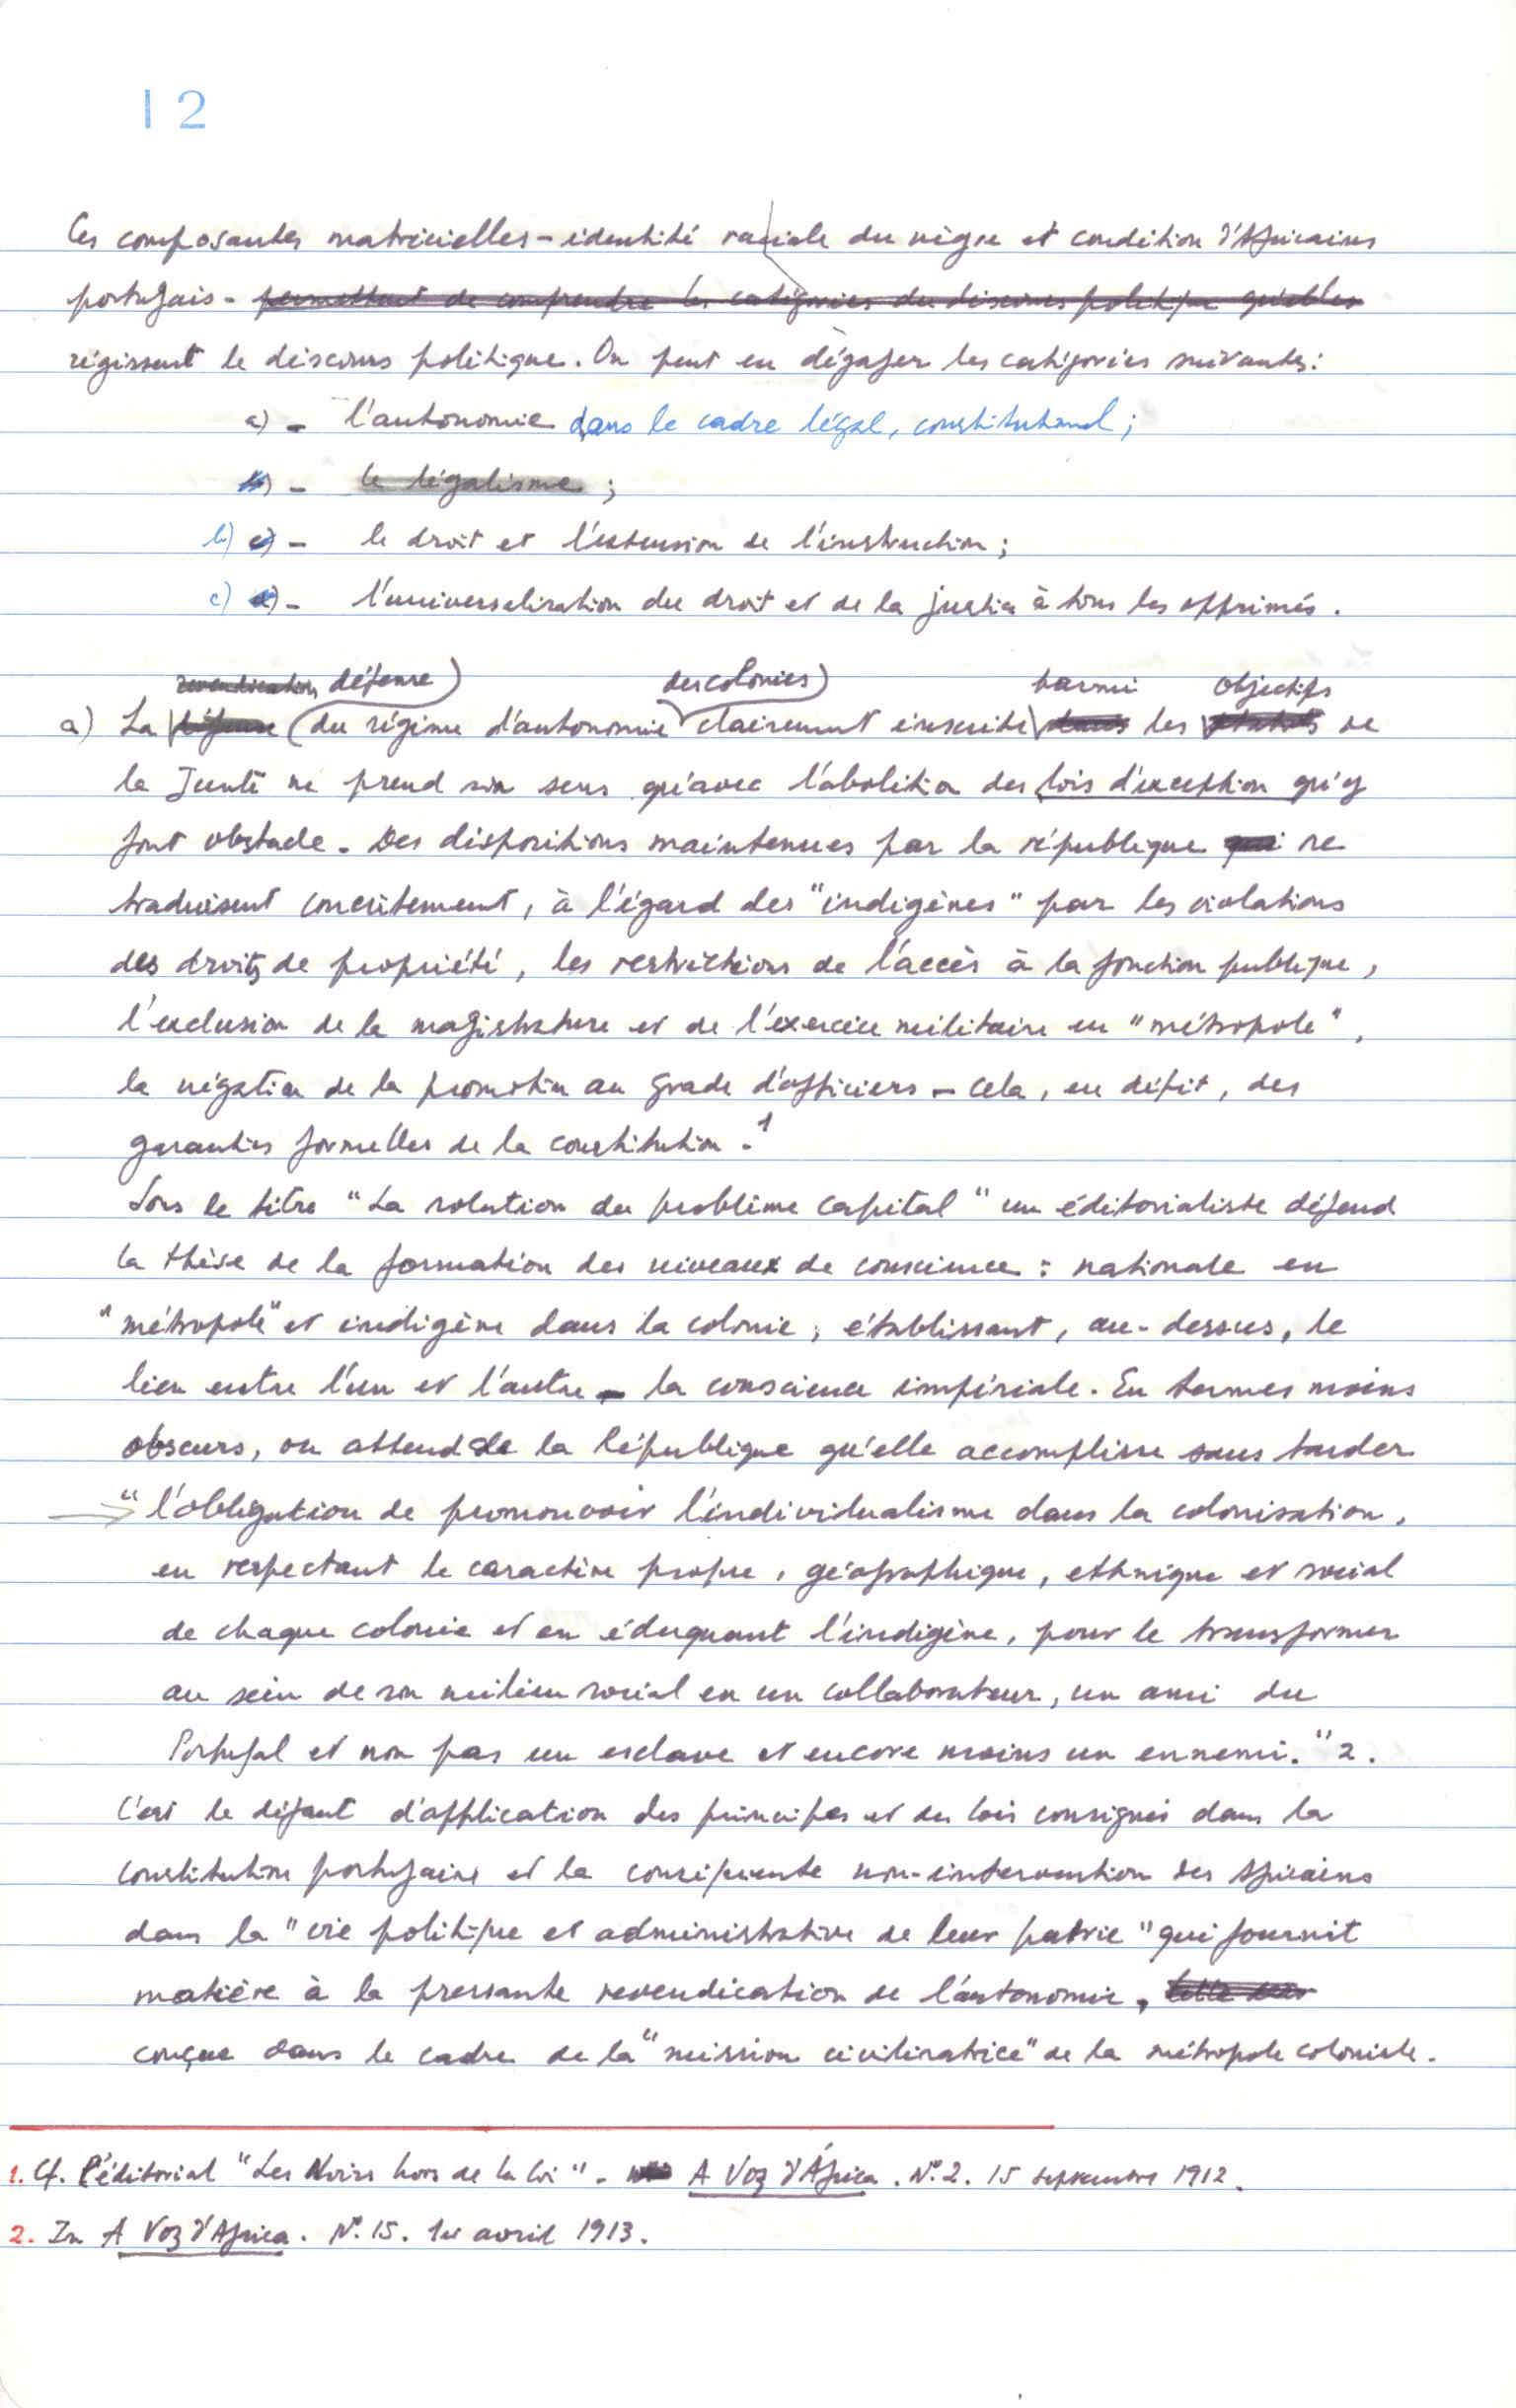 12
Ces composantes matricielles - identité raciale du nègre et condition d'Africains
portugais - permettent de comprendre les catégories du discours politique qu'elles
régissent le discours politique. On peut en dégager les catégories suivantes :
a) - l'autonomie dans le cadre légal, constitutionnel ;
b) - le légalisme ;
b) c) - le droit et l'extension de l'instruction ;
c) d) - l'universalisation du droit et de la justice à tous les opprimés.
revendication défense des colonies parmi objectifs
a) La défense du régime d'autonomie clairement inscrite dans les statuts de
la Junte ne prend son sens qu'avec l'abolition des lois d'exception qui y
font obstacle. Des dispositions maintenues par la république qui se
traduisent concrètement, à l'égard des "indigènes" par les violations
des droits de propriété, les restrictions de l'accès à la fonction publique,
l'exclusion de la magistrature et de l'exercice militaire en "métropole",
la négation de la promotion au grade d'officiers - cela, en dépit, des
garanties formelles de la constitution.1
Sous le titre "La solution du problème capital" un éditorialiste défend
la thèse de la formation des niveaux de conscience : nationale en
"métropole" et indigène dans la colonie, établissant, au-dessus, le
lien entre l'un et l'autre - la conscience impériale. En termes moins
obscurs, on attend de la République qu'elle accomplisse sans tarder
"l'obligation de promouvoir l'individualisme dans la colonisation,
en respectant le caractère propre, géographique, ethnique et social
de chaque colonie et en éduquant l'indigène, pour le transformer
au sein de son milieu social en un collaborateur, un ami du
Portugal et non pas un esclave et encore moins un ennemi." 2.
C'est le défaut d'application des principes et des lois consignés dans la
constitution portugaise et la conséquente non-intervention des Africains
dans la "vie politique et administrative de leur patrie" qui fournit
matière à la pressante revendication de l'autonomie,
conçue dans le cadre de la "mission civilisatrice" de la métropole coloniale.
1. Cf. l'éditorial "Les Noirs hors de la loi" - A Voz d'África. Nº. 2. 15 septembre 1912.
2. In A Voz d'Africa. Nº. 15. 1er avril 1913.